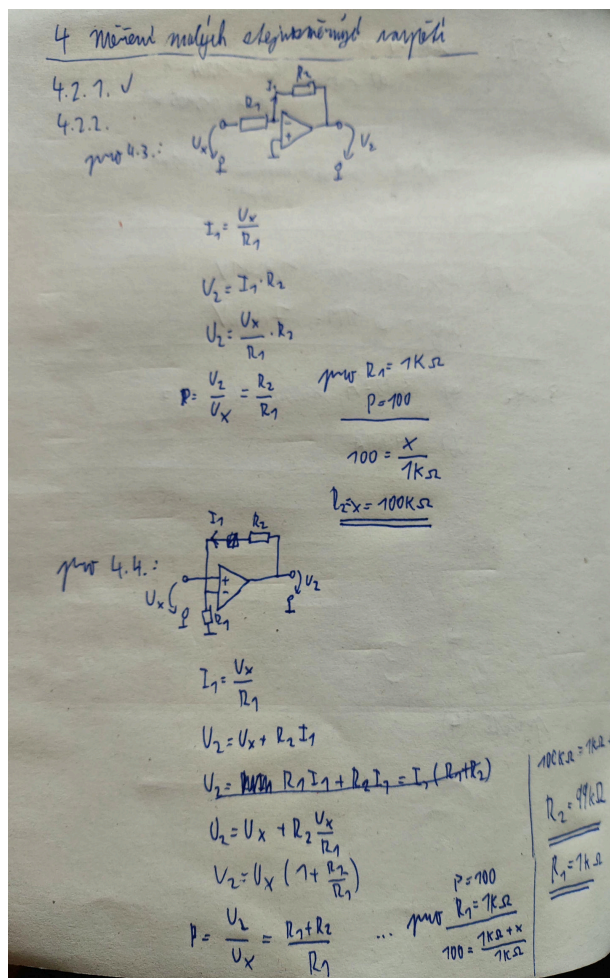 4 Měření malých stejnosměrných napětí
4.2.1. ✓
4.2.2.
pro 4.3.:
I₁ R₂
R₁
Uₓ - + U₂
I₁ = Uₓ/R₁
U₂ = I₁ · R₂
U₂ = Uₓ/R₁ · R₂
P = U₂/Uₓ = R₂/R₁
pro R₁ = 1KΩ
P = 100
100 = x/1KΩ
R₂ = x = 100KΩ
pro 4.4.:
I₁ R₂
Uₓ + - U₂
R₁
I₁ = Uₓ/R₁
U₂ = Uₓ + R₂ I₁
U₂ = R₁ I₁ + R₂ I₁ = I₁ (R₁+R₂)
U₂ = Uₓ + R₂ Uₓ/R₁
U₂ = Uₓ (1 + R₂/R₁)
P = U₂/Uₓ = R₁+R₂/R₁
... pro P = 100
R₁ = 1KΩ
100 = 1KΩ+x/1KΩ
100KΩ = 1KΩ +
R₂ = 99KΩ
R₁ = 1KΩ